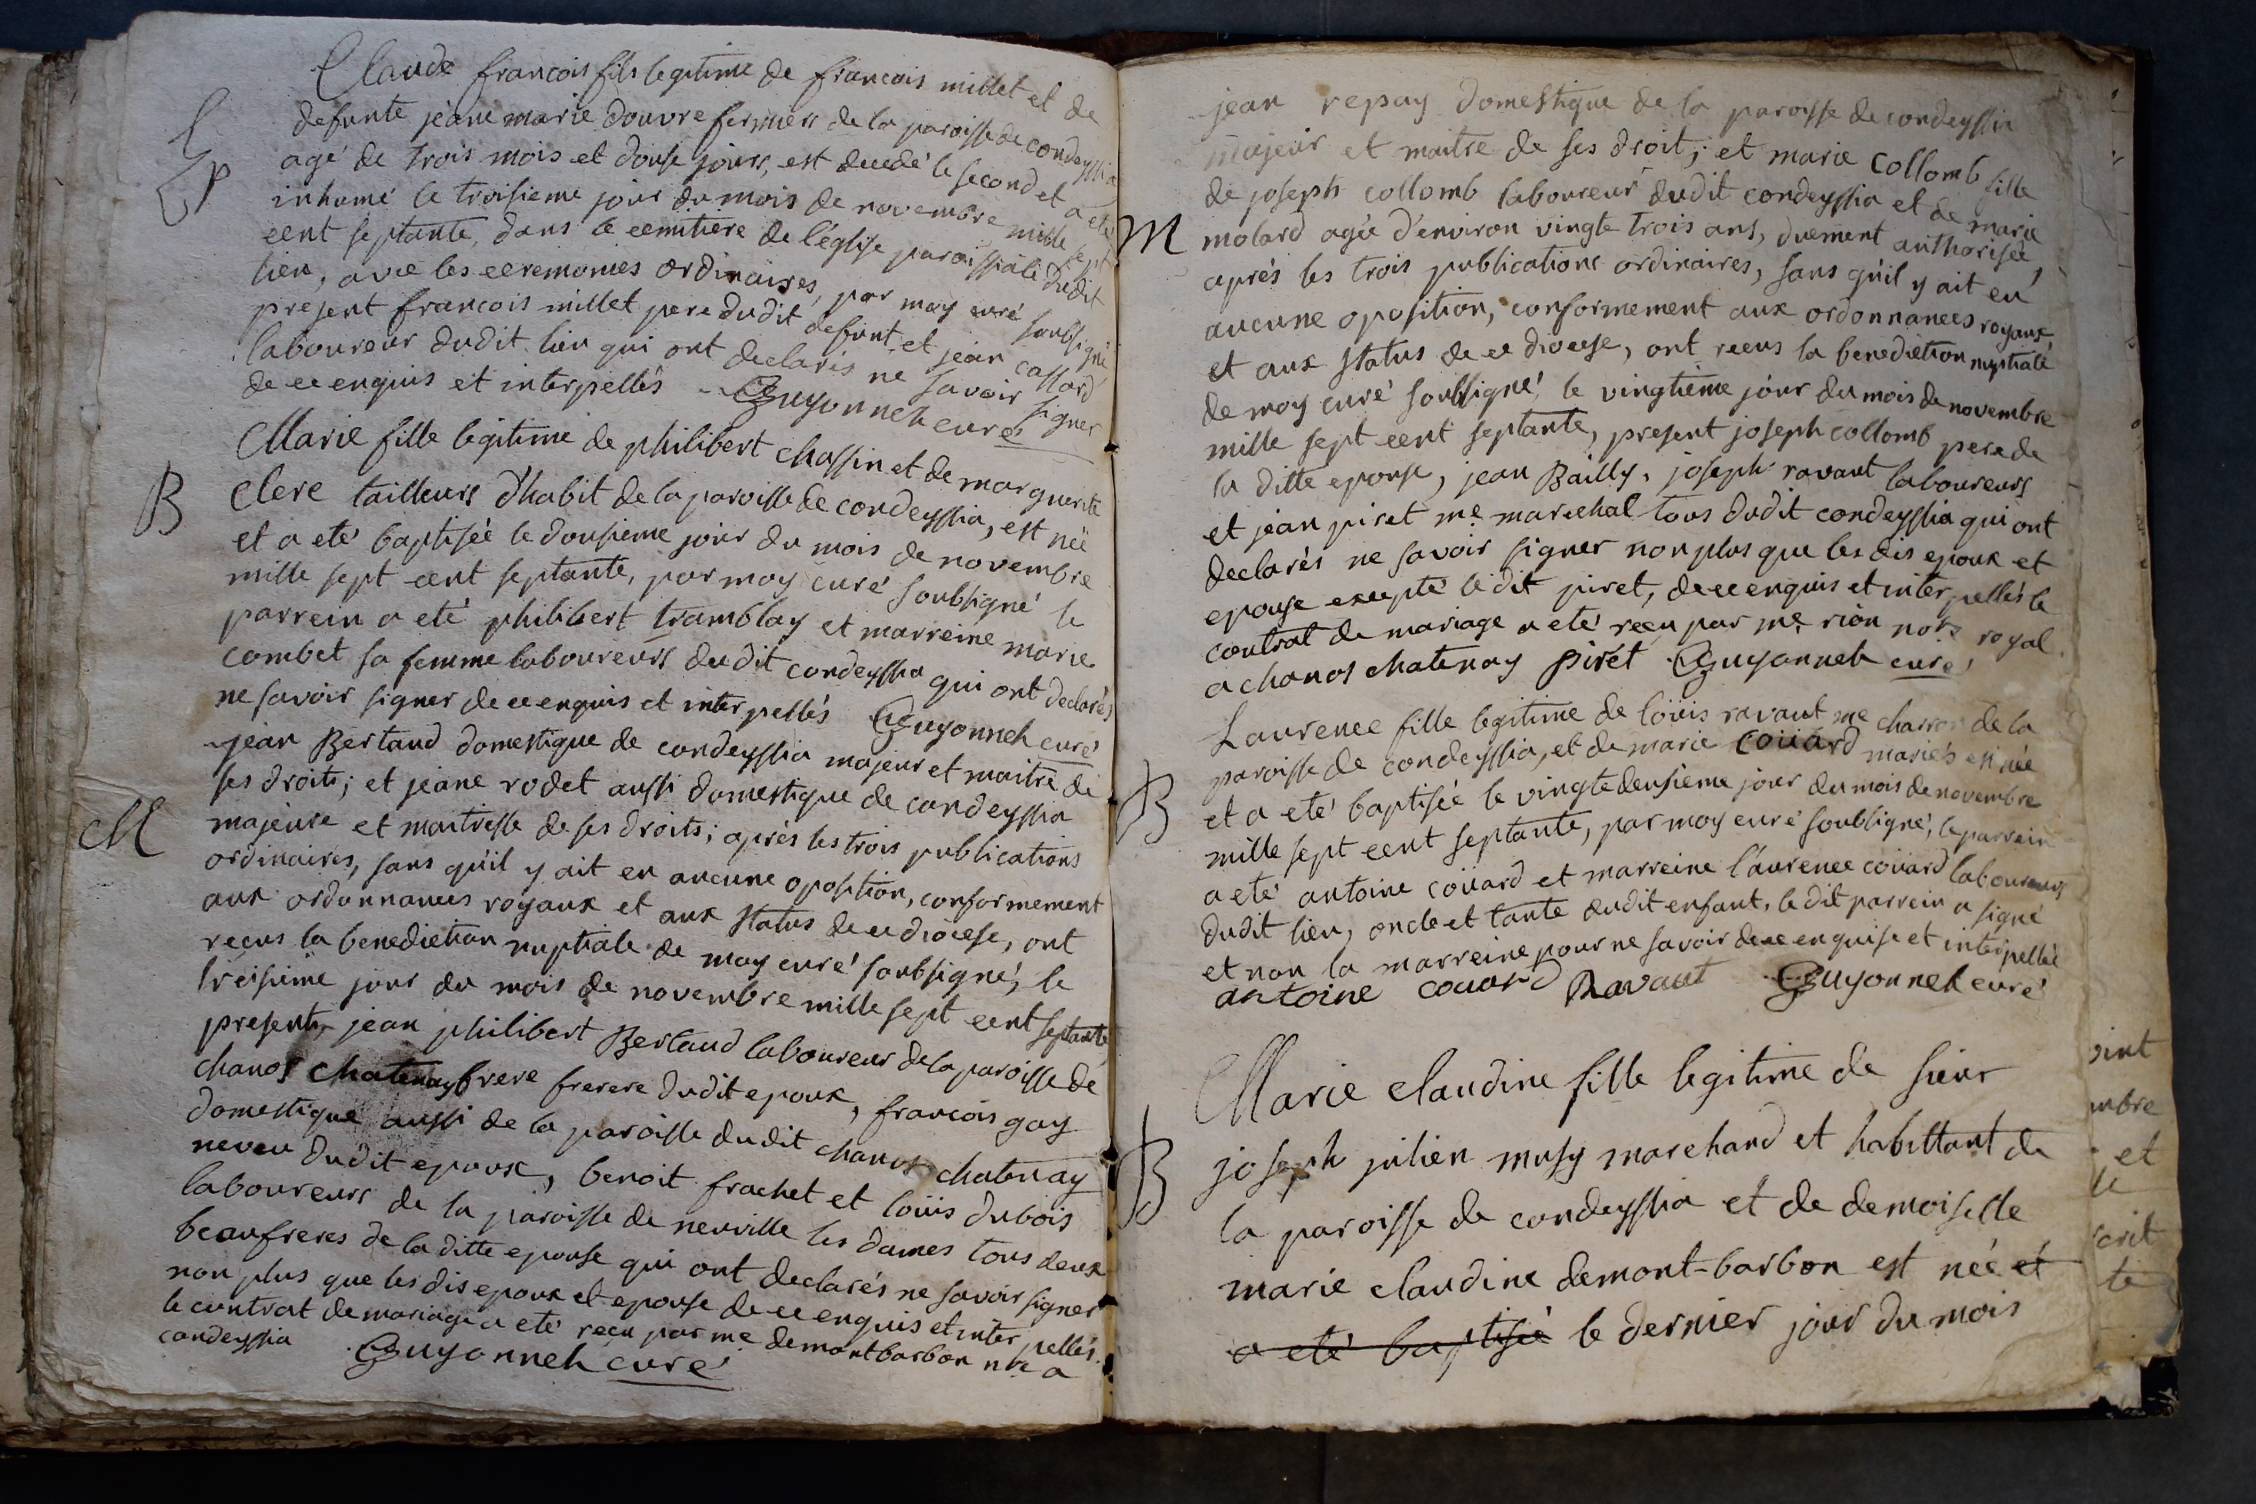 Claude francois fils legitime de francois millet et de
defunte jeane marie douvre fermiers de la paroisse de condeyssia
agé de trois mois et douse jours, est decedé le second et a eté
inhumé le troisieme jour du mois de novembre mille sept
cent septante, dans le cemitiere de l'églisse paroissiale dudit
lieu, avec les ceremonies ordinaires, par moy curé soubsigné
present francois millet pere dudit defunt et jean cassard
laboureur dudit lieu qui ont declarés ne savoir signer
de ce enquis et interpellés Guyonneh curé
B
Marie fille legitime de philibert chassin et de marguerite
clere tailleurs d'habit de la paroisse de condeyssia, est née
et a eté baptisée le dousieme jour du mois de novembre
mille sept cent septante, par moy curé soubsigné le
parrein a eté philibert tramblay et marreine marie
combet sa femme laboureurs dudit condeyssia qui ont declarés
ne savoir signer de ce enquis et interpellés Guyonneh curé
M
jean Bertaud domestique de condeyssia majeur et maitre de
ses droits; et jeane rodet aussi domestique de condeyssia
majeure et maitresse de ses droits; après les trois publications
ordinaires, sans qu'il y ait eu aucune oposition, conformement
aux ordonnances royaux et aux status de ce diocese, ont
recus la benediction nuptiale de moy curé soubsigné, le
treisieme jour du mois de novembre mille sept cent septante
presents, jean philibert Bertaud laboureur de la paroisse de
chanos chatenay frere frerere dudit epoux, francois gay
domestique aussi de la paroisse dudit chanos chatenay
neveu dudit epoux, benoit frachet et loüis dubois
laboureurs de la paroisse de neuville les dames tous deux
beaufreres de la ditte epouse qui ont declarés ne savoir signer
non plus que les dis epoux et epouse de ce enquis et interpellés.
le contrat de mariage a eté recu par me demontbarbon nre a
condeyssia Guyonneh curé
M
jean repay domestique de la paroisse de condeyssia
majeur et maitre de ses droit; et marie collomb fille
de joseph collomb laboureur dudit condeyssia et de marie
molard agée d'environ vingte trois ans, duement authorisée,
aprés les trois publications ordinaires, sans qu'il y ait eu
aucune oposition, conformement aux ordonnances royaux,
et aux status de ce diocese, ont recus la benediction nuptiale
de moy curé soubsigné, le vingtieme jour du mois de novembre
mille sept cent septante, present joseph collomb pere de
la ditte epouse, jean Bailly, joseph ravant laboureurs
et jean piret me marechal tous dudit condeyssia qui ont
declarés ne savoir signer non plus que les dis epoux et
epouse excepté le dit piret, de ce enquis et interpellés le
contrat de mariage a eté recu par me rion nore royal
a chanos chatenay Pirét Guyonneh curé
B
Laurence fille legitime de loüis ravaut me charron de la
paroisse de condeyssia, et de marie coüard mariés est née
et a eté baptisée le vingtedeusieme jour du mois de novembre
mille sept cent septante, par moy curé soubsigné, le parrein
a eté antoine coüard et marreine l'aurence coüard laboureurs
dudit lieu, oncle et tante dudit enfant, le dit parrein a signé
et non la marreine pour ne savoir de ce enquise et interpellée
antoine couard Ravaut Guyonneh curé
B
Marie claudine fille legitime de sieur
joseph julien musy marchand et habittant de
la paroisse de condeyssia et de demoiselle
marie claudine demont-barbon est née et
a eté baptisée le dernier jour du mois